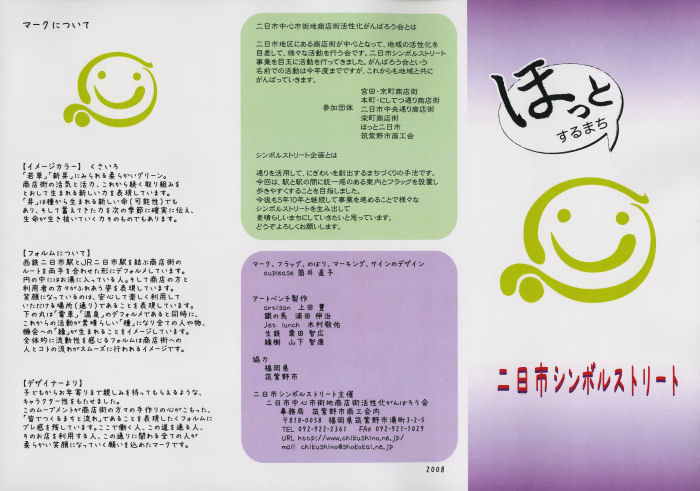 マークについて
【イメージカラー】 くさいろ
「若草」「新芽」にみられる柔らかいグリーン。
商店街の活気と活力、これから続く取り組みを
とおして生まれる新しい力を表現しています。
「芽」は種から生まれる新しい命(可能性)でも
あり、そして蓄えてきた力を次の季節に確実に伝え、
生命が生き抜いていく力そのものでもあります。
【フォルムについて】
西鉄二日市駅とJR二日市駅を結ぶ商店街の
ルートを両手を合わせた形にデフォルメしています。
円の中にはお湯に入っている人。そして商店の方と
利用者の方々がふれあう姿を表現しています。
笑顔になっているのは、安心して楽しく利用して
いただける場所(通り)であることを表現しています。
下の丸は「電車」「温泉」のデフォルメであると同時に、
これからの活動が素晴らしい「種」になり全ての人や物、
機会への「縁」が生まれることをイメージしています。
全体的に流動性を感じるフォルムは商店街への
人とコトの流れがスムーズに行われるイメージです。
【デザイナーより】
子どもからお年寄りまで親しみを持ってもらえるような、
キャラクター性をもたせました。
このムーブメントが商店街の方々の手作りの心がこもった、
「皆でつくるまちと流れ」であることを表現したくフォルムに
ブレ感を残しています。ここで働く人、この道を通る人、
そのお店を利用する人、この通りに関わる全ての人が
柔らかい笑顔になっていく願いを込めたマークです。
二日市中心市街地商店街活性化がんばろう会とは
二日市地区にある商店街が中心となって、地域の活性化を
目差して、様々な活動を行う会です。二日市シンボルストリート
事業を目玉に活動を行ってきました。がんばろう会という
名前での活動は今年度までですが、これからも地域と共に
がんばっていきます。
宮田・京町商店街
本町・にしてつ通り商店街
参加団体 二日市中央通り商店街
栄町商店街
ほっと二日市
筑紫野市商工会
シンボルストリート企画とは
通りを活用して、にぎわいを創出するまちづくりの手法です。
今回は、駅と駅の間に統一感のある案内とフラッグを設置し
歩きやすくすることを目指しました。
今後も5年10年と継続して事業を進めることで様々な
シンボルストリートを生み出して
素晴らしいまちにしていきたいと思っています。
どうぞよろしくお願いします。
マーク、フラッグ、のぼり、マーキング、サインのデザイン
auplease 筒井 直子
アートベンチ製作
artisan 上田 豊
鐵の馬 浦田 伸治
Jet lunch 木村敬佑
生鉄 栗田 智広
緑樹 山下 智康
協力
福岡県
筑紫野市
二日市シンボルストリート主催
二日市中心市街地商店街活性化がんばろう会
事務局 筑紫野市商工会内
〒818-0058 福岡県筑紫野市湯町3-2-5
TEL 092-922-2361 FAX 092-921-1029
URL http://www.chikushino.ne.jp/
mail chikushino@shokokai.ne.jp
2008
ほっと
するまち
二日市シンボルストリート